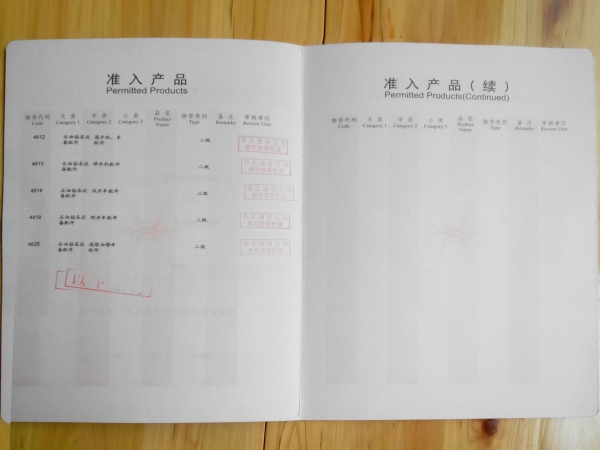 准入产品
Permitted Products
物资代码 大类 中类 小类 品名 物资类别 备注 审核单位
Code Category 1 Category 2 Category 3 Product Name Type Remarks Review Unit
4812 石油钻采设备配件 通井机、车配件 二级
4813 石油钻采设备配件 修井机配件 二级
481# 石油钻采设备配件 试井车配件 二级
4819 石油钻采设备配件 测井车配件 二级
4825 石油钻采设备配件 二级
以下
准入产品(续)
Permitted Products(Continued)
物资代码 大类 中类 小类 品名 物资类别 备注 审核单位
Code Category 1 Category 2 Category 3 Product Name Type Remarks Review Unit